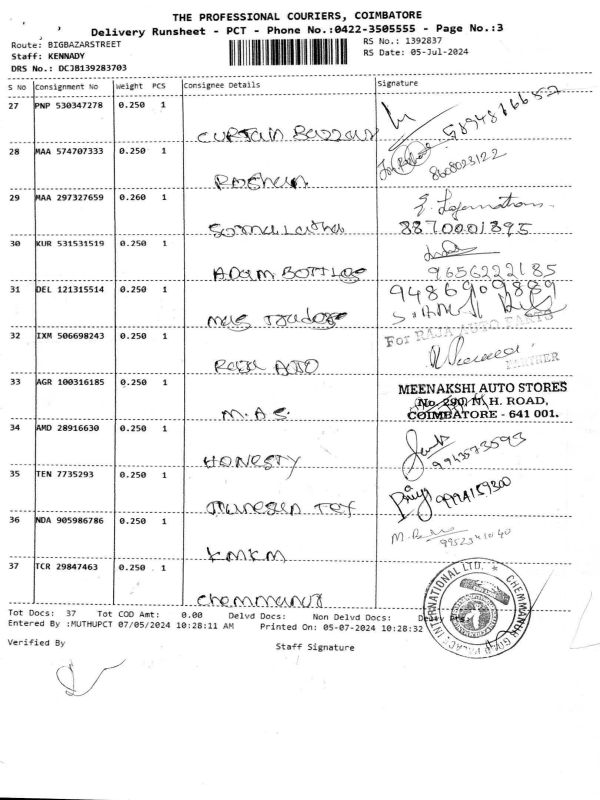 THE PROFESSIONAL COURIERS, COIMBATORE
Delivery Runsheet - PCT - Phone No.:0422-3505555 - Page No.:3
Route: BIGBAZARSTREET
RS No.: 1392837
Staff: KENNADY
RS Date: 05-Jul-2024
DRS No.: DCJB139283703
S No Consignment No Weight PCS Consignee Details Signature
27 PNP 530347278 0.250 1
Curtain Bazzar
28 MAA 574707333 0.250 1
8608023122
Roshan
29 MAA 297327659 0.260 1
8870001895
30 KUR 531531519 0.250 1
9656222185
ADAM BOTTLes
31 DEL 121315514 0.250 1
9486909889
32 IXM 506698243 0.250 1
For RAJA AUTO PARTS
PARTNER
Raja AUTO
33 AGR 100316185 0.250 1
MEENAKSHI AUTO STORES
No. 290, N.H. ROAD,
COIMBATORE - 641 001.
M.A.S.
34 AMD 28916630 0.250 1
9943573593
HONESTY
35 TEN 7735293 0.250 1
9994159300
36 NDA 905986786 0.250 1
9952341040
KMKM
37 TCR 29847463 0.250 1
Chemmanur
CHEMMANUR GOLD PALACE INTERNATIONAL LTD. *
Tot Docs: 37 Tot COD Amt: 0.00 Delvd Docs: Non Delvd Docs:
Entered By :MUTHUPCT 07/05/2024 10:28:11 AM Printed On: 05-07-2024 10:28:32
Verified By
Staff Signature